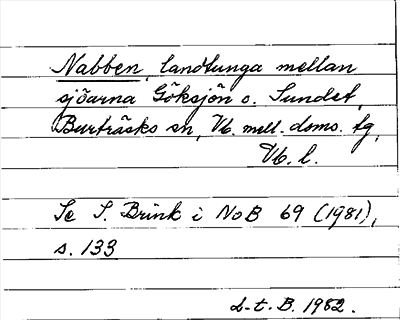 Nabben, landtunga mellan
sjöarna Göksjön o. Sundet,
Burträsks sn, Vb. mell. doms. tg,
Vb. l.
Se S. Brink i NoB 69 (1981),
s. 133
L-t. B. 1982.